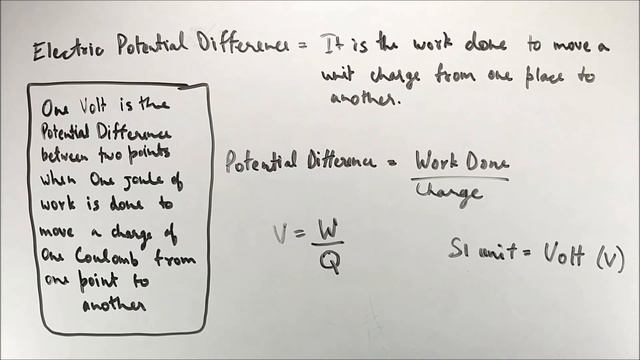 Electric Potential Difference = It is the work done to move a
unit charge from one place to
another.
One Volt is the
Potential Difference
between two points
when One joule of
work is done to
move a charge of
One Coulomb from
one point to
another
Potential Difference = Work Done
Charge
V = W
Q
SI unit = Volt (V)